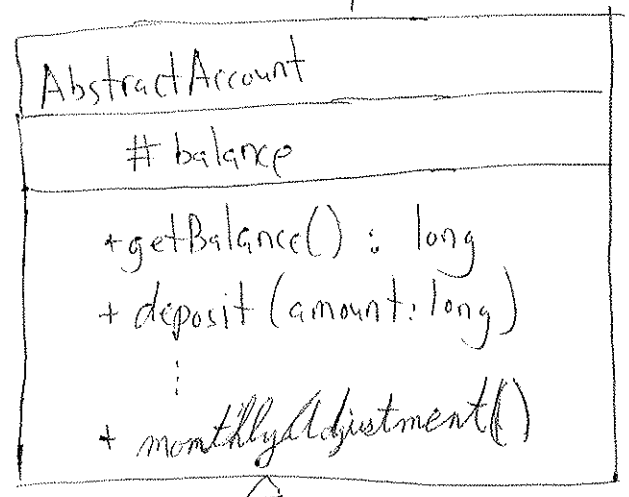 AbstractAccount
# balance
+getBalance() : long
+ deposit (amount: long)
⋮
+ monthlyAdjustment()